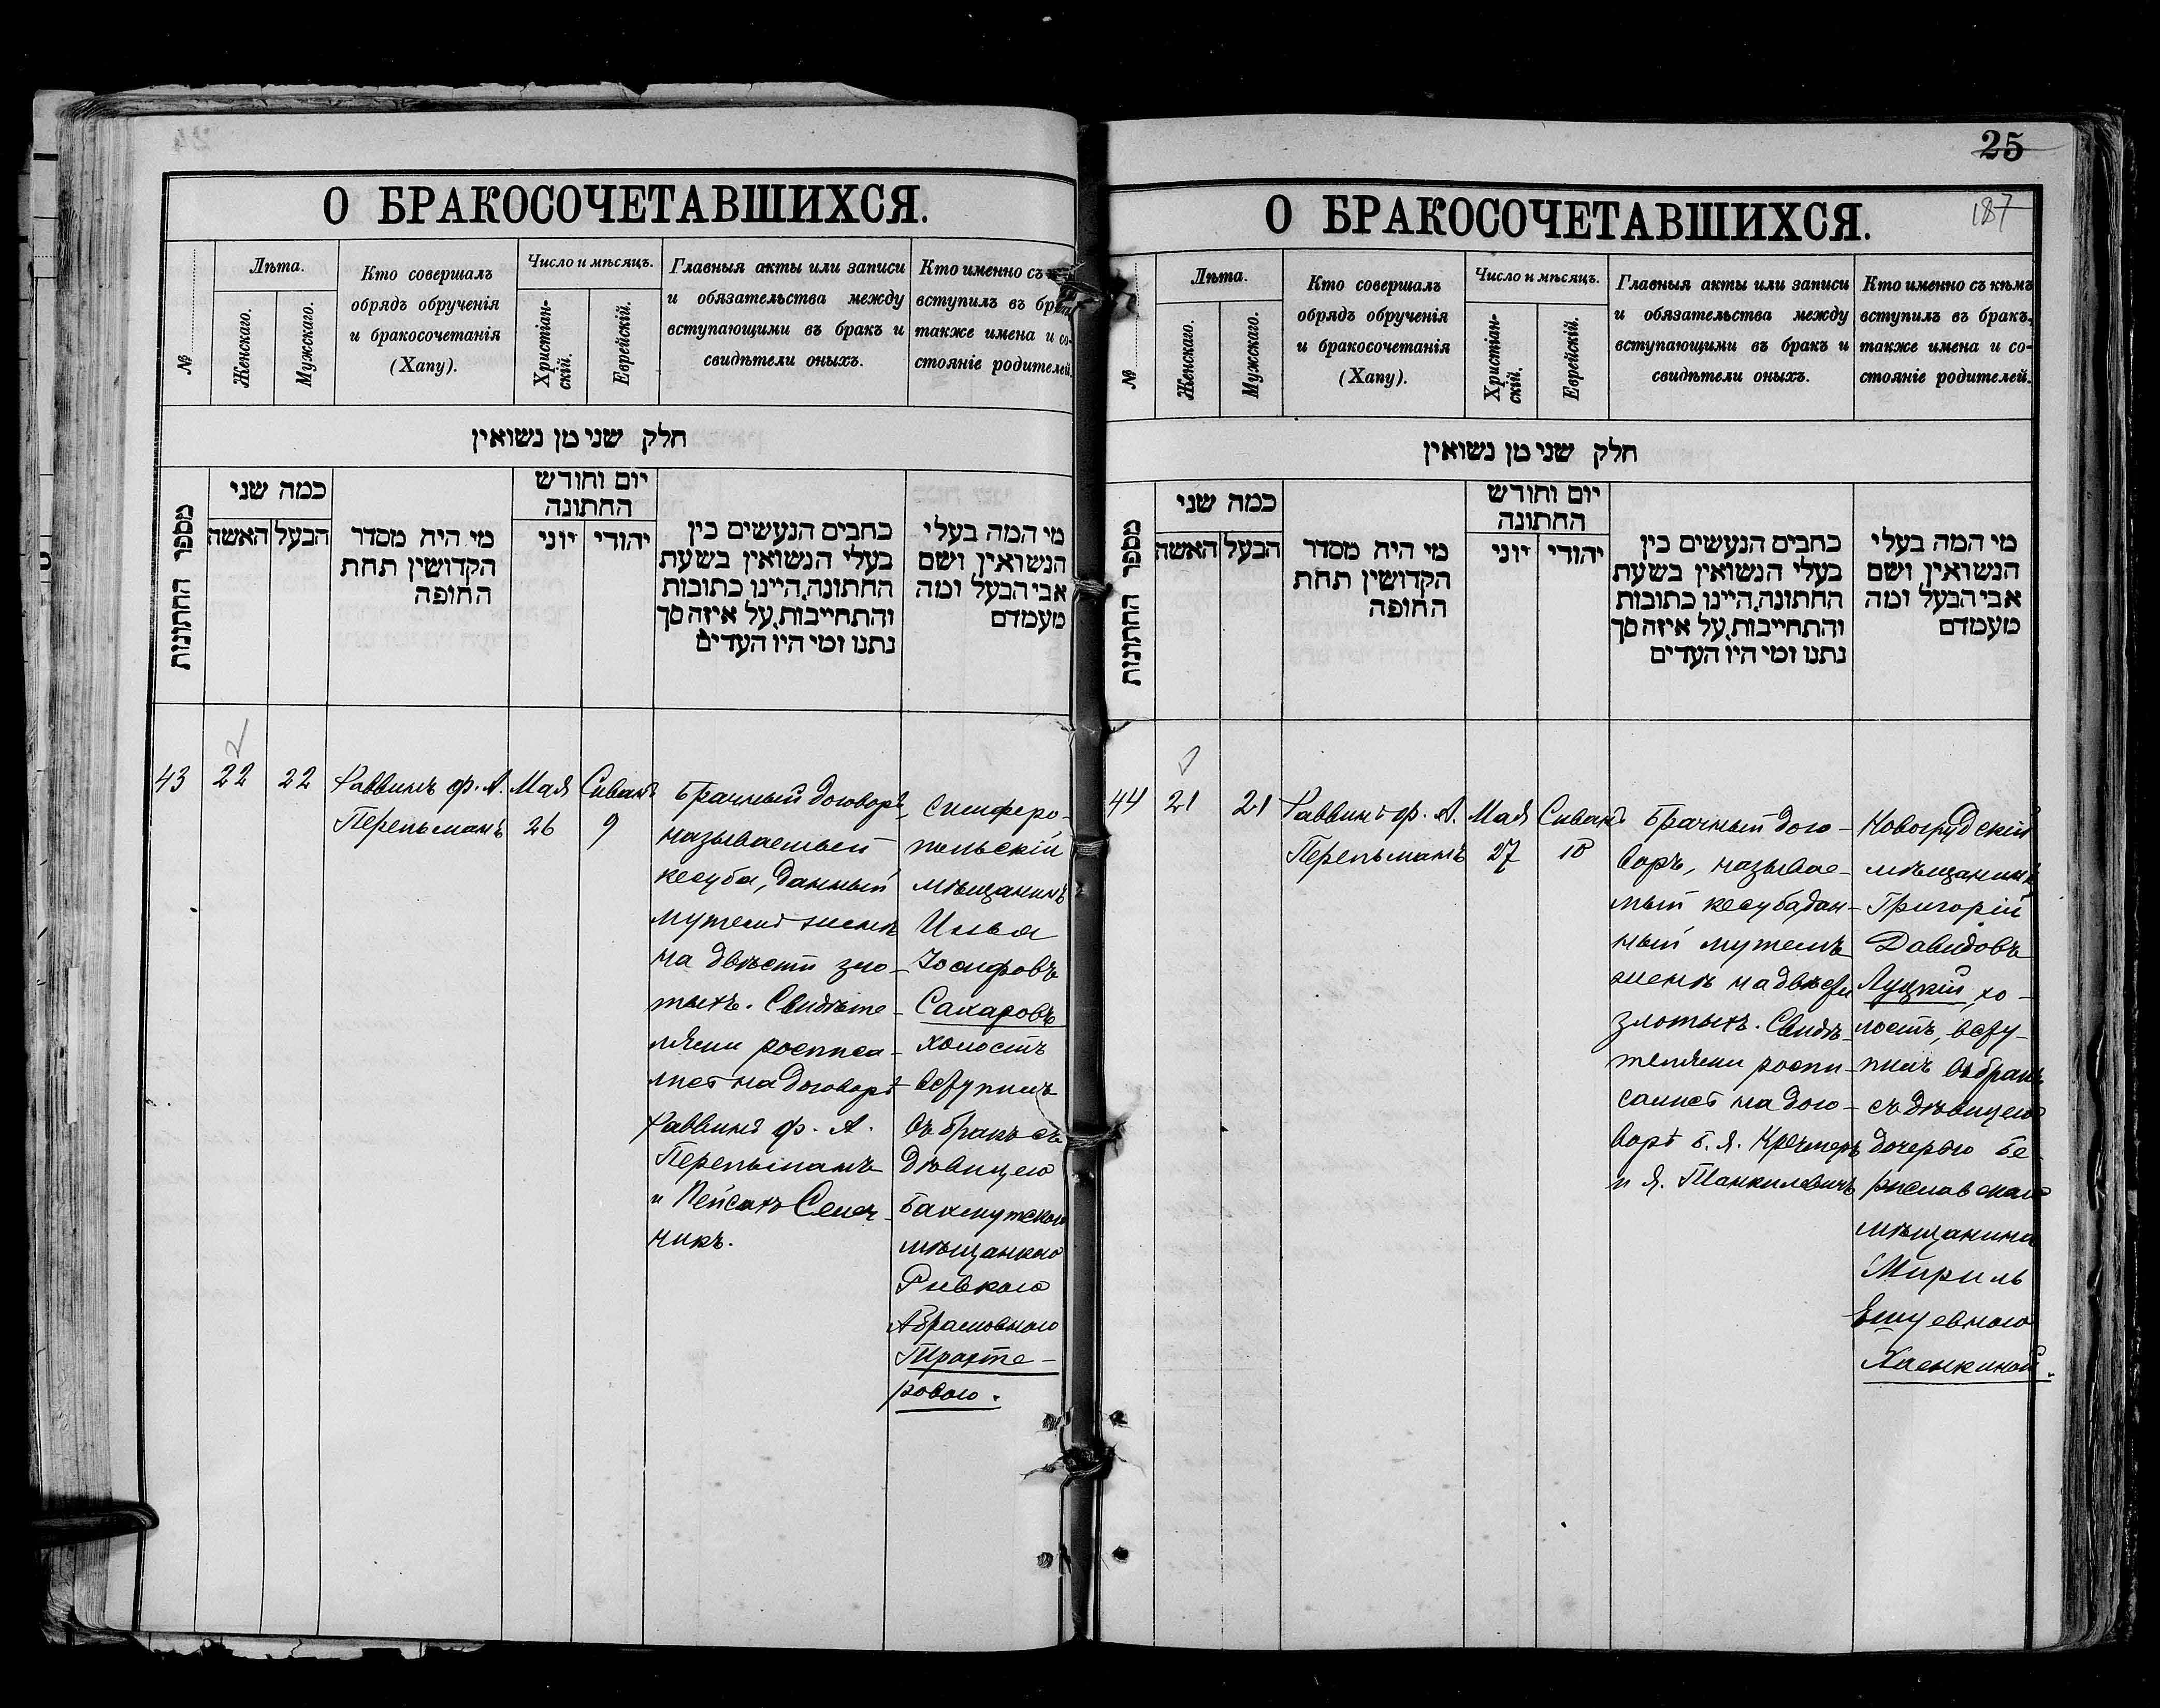 О БРАКОСОЧЕТАВШИХСЯ.
№
Лѣта.
Женскаго.
Мужскаго.
Кто совершалъ
обрядъ обрученія
и бракосочетанія
(Хапу).
Число и мѣсяцъ.
Христіан-
скій.
Еврейскій.
Главныя акты или записи
и обязательства между
вступающими въ бракъ и
свидѣтели оныхъ.
Кто именно съ
вступилъ въ бракъ
также имена и со-
стояніе родителей.
חלק שני מן נשואין
מספר החתונות
כמה שני
הבעל
האשה
מי היה מסדר
הקדושין תחת
החופה
יום וחודש
החתונה
יהודי
יוני
כתבים הנעשים בין
בעלי הנשואין בשעת
החתונה, היינו כתובות
והתחייבות, על איזה סך
נתנו ומי היו העדים
מי המה בעלי
הנשואין, ושם
אבי הבעל ומה
מעמדם
43
22
22
Раввинъ ф. А.
Перельманъ
Мая
26
Сиванъ
9
Брачный договоръ,
называемый
кесуба, данный
мужемъ женѣ
на двѣсти зло-
тыхъ. Свидѣте-
лями росписа-
лись на договорѣ
Раввинъ ф. А.
Перельманъ
и Пейсахъ Семен-
чикъ.
Симферо-
польскій
мѣщанинъ
Илья
Іосифовъ
Сахаровъ
холостъ
вступилъ
въ бракъ съ
дѣвицею
Бахмутскою
мѣщанкою
Ривкою
Абрамовною
Трахте-
ровою.
25
О БРАКОСОЧЕТАВШИХСЯ.
187
№
Лѣта.
Женскаго.
Мужскаго.
Кто совершалъ
обрядъ обрученія
и бракосочетанія
(Хапу).
Число и мѣсяцъ.
Христіан-
скій.
Еврейскій.
Главныя акты или записи
и обязательства между
вступающими въ бракъ и
свидѣтели оныхъ.
Кто именно съ кѣмъ
вступилъ въ бракъ,
также имена и со-
стояніе родителей.
חלק שני מן נשואין
מספר החתונות
כמה שני
הבעל
האשה
מי היה מסדר
הקדושין תחת
החופה
יום וחודש
החתונה
יהודי
יוני
כתבים הנעשים בין
בעלי הנשואין בשעת
החתונה, היינו כתובות
והתחייבות, על איזה סך
נתנו ומי היו העדים
מי המה בעלי
הנשואין, ושם
אבי הבעל ומה
מעמדם
44
21
21
Раввинъ ф. А.
Перельманъ
Мая
27
Сиванъ
10
Брачный дого-
воръ, называе-
мый кесуба дан-
ный мужемъ
женѣ на двѣсти
злотыхъ. Свидѣ-
телями роспи-
сались на дого-
ворѣ Б. Я. Кречмеръ
и Я. Танкилевичъ
Новогрудскій
мѣщанинъ
Григорій
Давидовъ
Луцкій, хо-
лостъ, всту-
пилъ въ бракъ
съ дѣвицею
дочерью Бе-
риславскаго
мѣщанина
Мириль
Ешуевною
Хаенкиной.